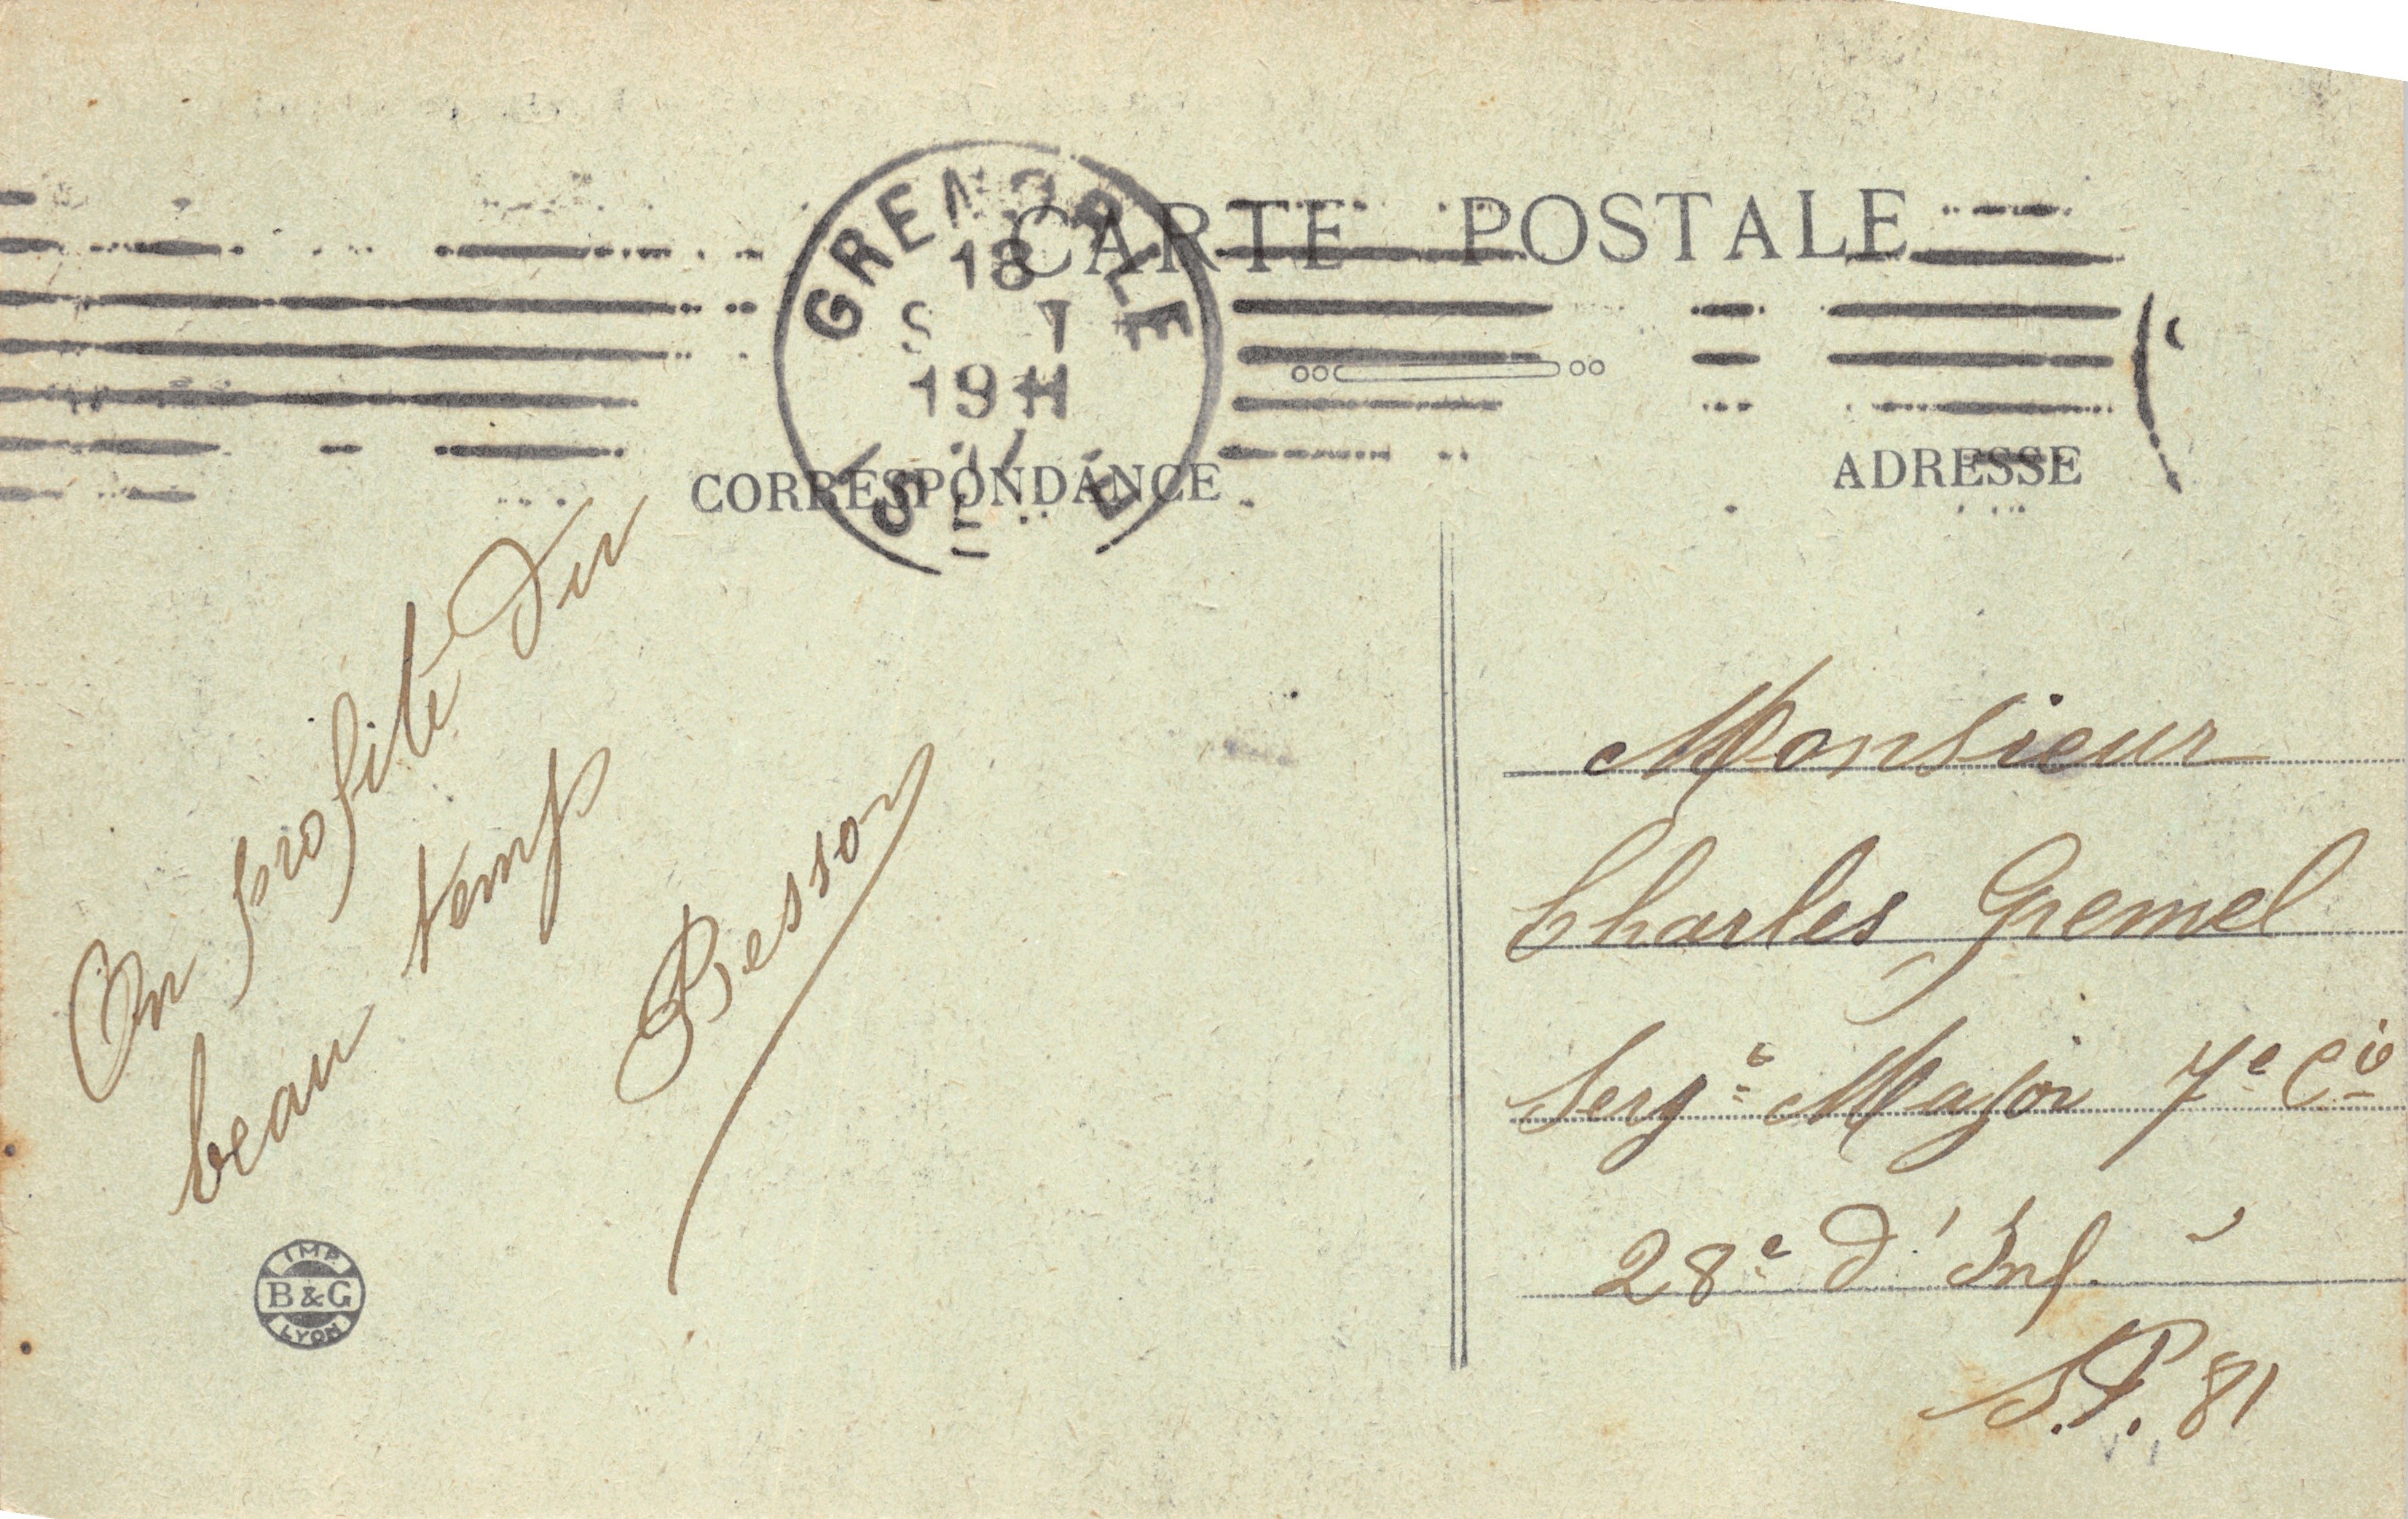 GRENOBLE
18
19H
CARTE POSTALE
CORRESPONDANCE
ADRESSE
On profite du
beau temps
Besson
Monsieur
Charles Gremel
Sergt Major 7e Cie
28e d'Inf.
S.P. 81
IMP
B & G
LYON